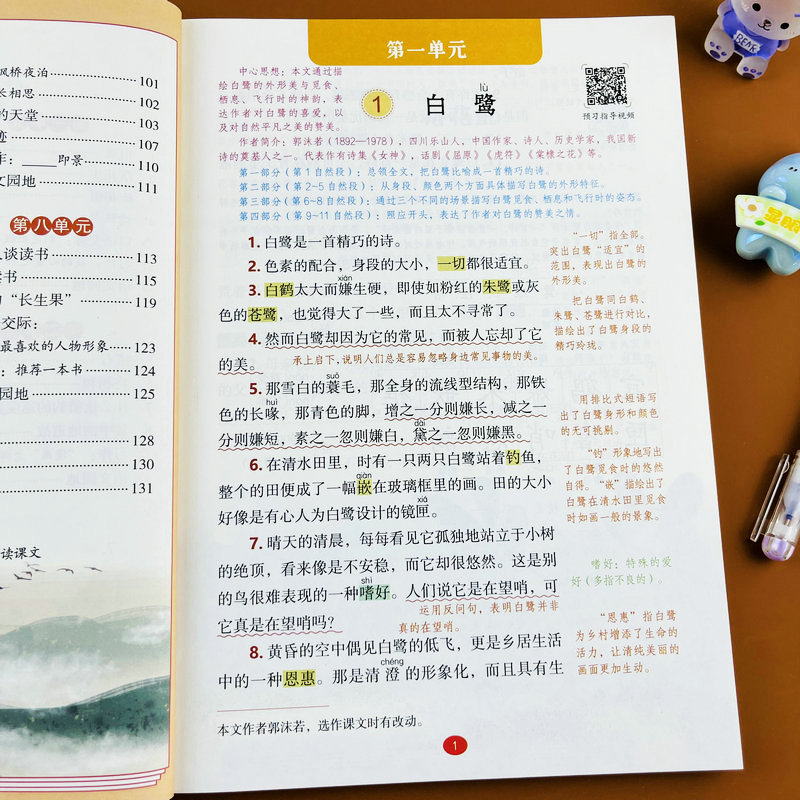 枫桥夜泊 101
长相思 102
的天堂 103
迹 107
作：_____即景 110
文园地 111
第八单元
人谈读书 113
读书 115
的“长生果” 119
交际：
最喜欢的人物形象 123
：推荐一本书 124
园地 125
128
130
131
读课文
第一单元
中心思想：本文通过描
绘白鹭的外形美与觅食、
栖息、飞行时的神韵，表
达作者对白鹭的喜爱，以
及对自然平凡之美的赞美。
lù
1 白鹭
预习指导视频
作者简介：郭沫若（1892—1978），四川乐山人，中国作家、诗人、历史学家，我国新
诗的奠基人之一。代表作有诗集《女神》，话剧《屈原》《虎符》《棠棣之花》等。
第一部分（第1自然段）：总领全文，把白鹭比喻成一首精巧的诗。
第二部分（第2~5自然段）：从身段、颜色两个方面具体描写白鹭的外形特征。
第三部分（第6~8自然段）：通过三个不同的场景描写白鹭觅食、栖息和飞行时的姿态。
第四部分（第9~11自然段）：照应开头，表达了作者对白鹭的赞美之情。
1. 白鹭是一首精巧的诗。
2. 色素的配合，身段的大小，一切都很适宜。
xián
3. 白鹤太大而嫌生硬，即使如粉红的朱鹭或灰
色的苍鹭，也觉得大了一些，而且太不寻常了。
4. 然而白鹭却因为它的常见，而被人忘却了它
的美。 承上启下，说明人们总是容易忽略身边常见事物的美。
suō
5. 那雪白的蓑毛，那全身的流线型结构，那铁
huì
色的长喙，那青色的脚，增之一分则嫌长，减之一
dài
分则嫌短，素之一忽则嫌白，黛之一忽则嫌黑。
6. 在清水田里，时有一只两只白鹭站着钓鱼，
qiàn
整个的田便成了一幅嵌在玻璃框里的画。田的大小
xiá
好像是有心人为白鹭设计的镜匣。
7. 晴天的清晨，每每看见它孤独地站立于小树
的绝顶，看来像是不安稳，而它却很悠然。这是别
shì
的鸟很难表现的一种嗜好。人们说它是在望哨，可
它真是在望哨吗？
运用反问句，表明白鹭并非
真的在望哨。
8. 黄昏的空中偶见白鹭的低飞，更是乡居生活
chéng
中的一种恩惠。那是清澄的形象化，而且具有生
“一切”指全部。
突出白鹭“适宜”的
范围，表现出白鹭的
外形美。
把白鹭同白鹤、
朱鹭、苍鹭进行对比，
描绘出了白鹭身段的
精巧玲珑。
用排比式短语写
出了白鹭身形和颜色
的无可挑剔。
“钓”形象地写出
了白鹭觅食时的悠然
自得。“嵌”描绘出了
白鹭在清水田里觅食
时如画一般的景象。
嗜好：特殊的爱
好（多指不良的）。
“恩惠”指白鹭
为乡村增添了生命的
活力，让清纯美丽的
画面更加生动。
本文作者郭沫若，选作课文时有改动。
1
BEAR